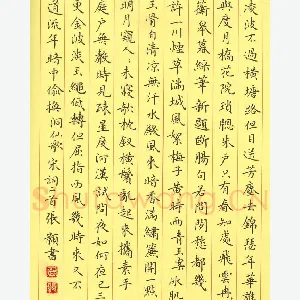 凌波不過橫塘路但目送芳塵去錦瑟年華誰
與度月橋花院瑣窗朱戶只有春知處飛雲冉冉
蘅皋暮綵筆新題斷腸句若問閒愁都幾
許一川煙草滿城風絮梅子黃時雨青玉案冰肌
玉骨自清涼無汗水殿風來暗香滿繡簾開一點
明月窺人人未寢敧枕釵橫鬢亂起來攜素手
庭戶無聲時見疏星度河漢試問夜如何夜已三
更金波淡玉繩低轉但屈指西風幾時來又不
道流年暗中偷換洞仙歌宋詞二首張顥書
Shufawang.CN